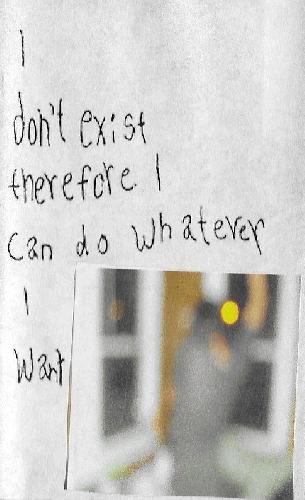 I
don't exist
therefore I
can do whatever
I
want